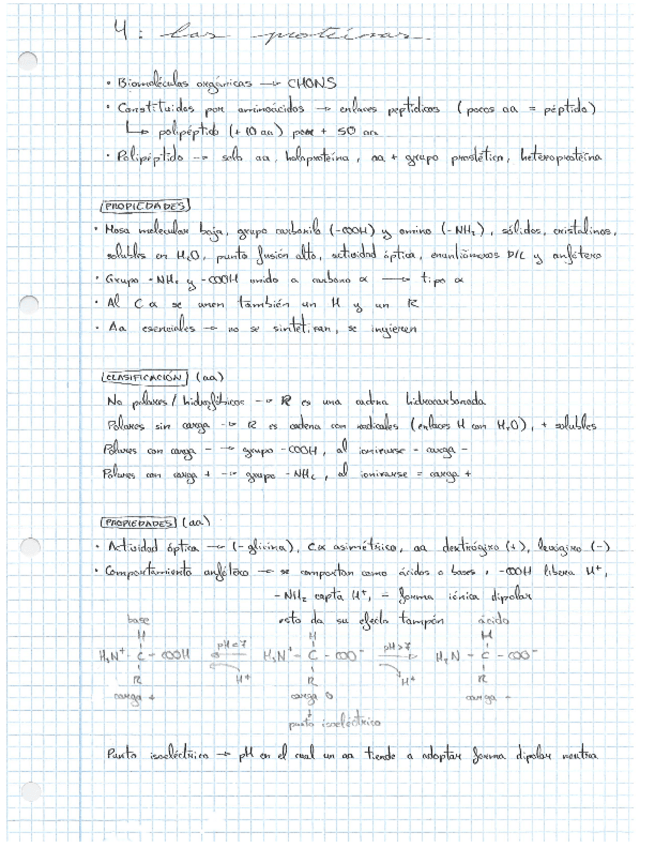 4: Las proteínas.
• Biomoléculas orgánicas → CHONS
• Constituidas por aminoácidos → enlaces peptídicos (pocos aa = péptido)
↳ polipéptido (+10 aa) + 50 aa
• Polipéptido → solo aa, holoproteína, aa + grupo prostético, heteroproteína
PROPIEDADES
• Masa molecular baja, grupo carboxilo (-COOH) y amino (-NH₂), sólidos, cristalinos,
solubles en H₂O, punto fusión alto, actividad óptica, enantiómeros D/L y anfótero
• Grupo -NH₂ y -COOH unido a carbono α → tipo α
• Al C α se unen también un H y un R
• Aa esenciales → no se sintetizan, se ingieren
CLASIFICACIÓN (aa)
No polares / hidrofóbicos → R es una cadena hidrocarbonada
Polares sin carga → R es cadena con radicales (enlaces H con H₂O), + solubles
Polares con carga - → grupo -COOH, al ionizarse = carga -
Polares con carga + → grupo -NH₂, al ionizarse = carga +
PROPIEDADES (aa)
• Actividad óptica → (-glicina), Cα asimétrico, aa dextrógiro (+), levógiro (-)
• Comportamiento anfótero → se comportan como ácidos o bases, -COOH libera H⁺,
-NH₂ capta H⁺, = forma iónica dipolar
esto da su efecto tampón
base ácido
H H H
H₃N⁺ - C - COOH pH<7 H₃N⁺ - C - COO⁻ pH>7 H₂N - C - COO⁻
R H⁺ R H⁺ R
carga + carga 0 carga -
punto isoeléctrico
Punto isoeléctrico → pH en el cual un aa tiende a adoptar forma dipolar neutra